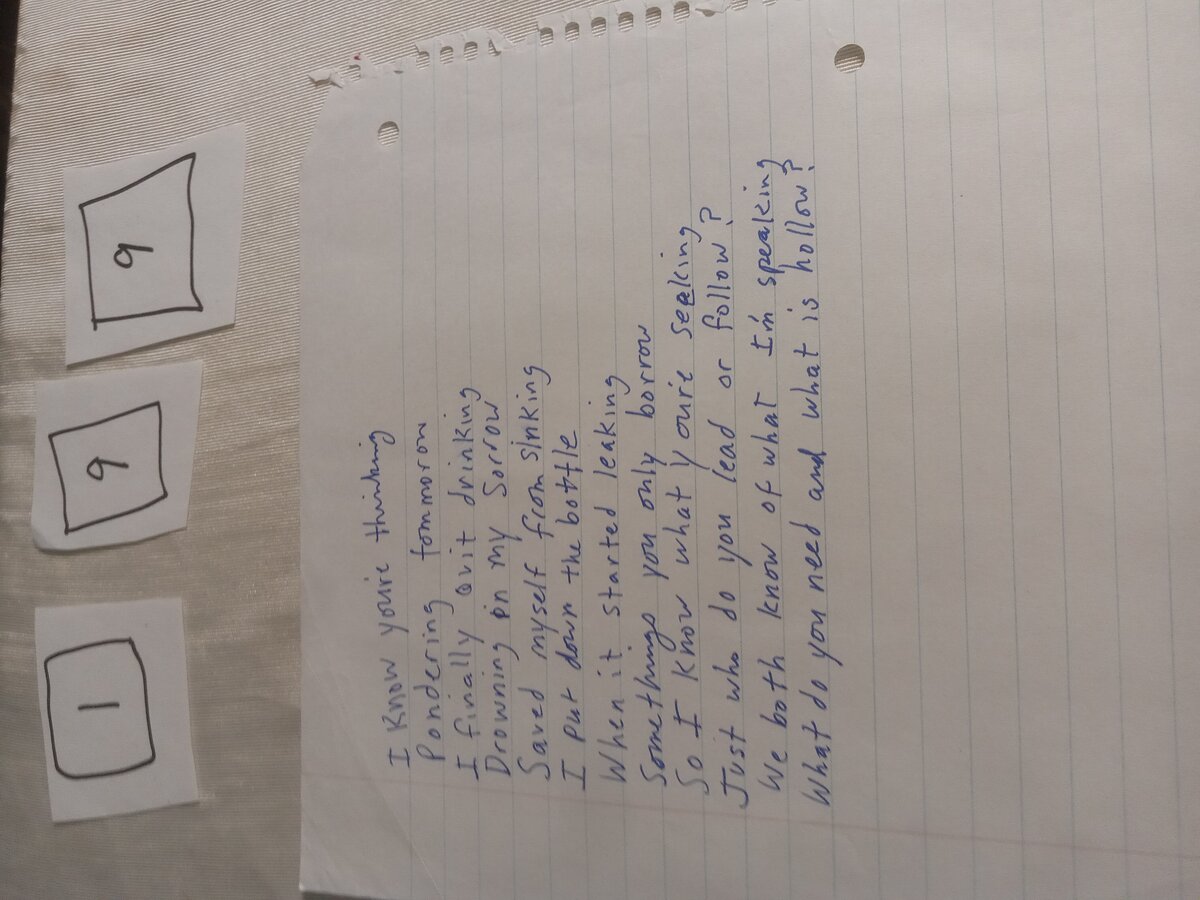 1 9 9
I Know you're thinking
Pondering tommorow
I finally Quit drinking
Drowning in my Sorrow
Saved myself from sinking
I put down the bottle
When it started leaking
Somethings you only borrow
So I Know what you're seaking
Just who do you lead or follow?
We both know of what I'm speaking
What do you need and what is hollow?